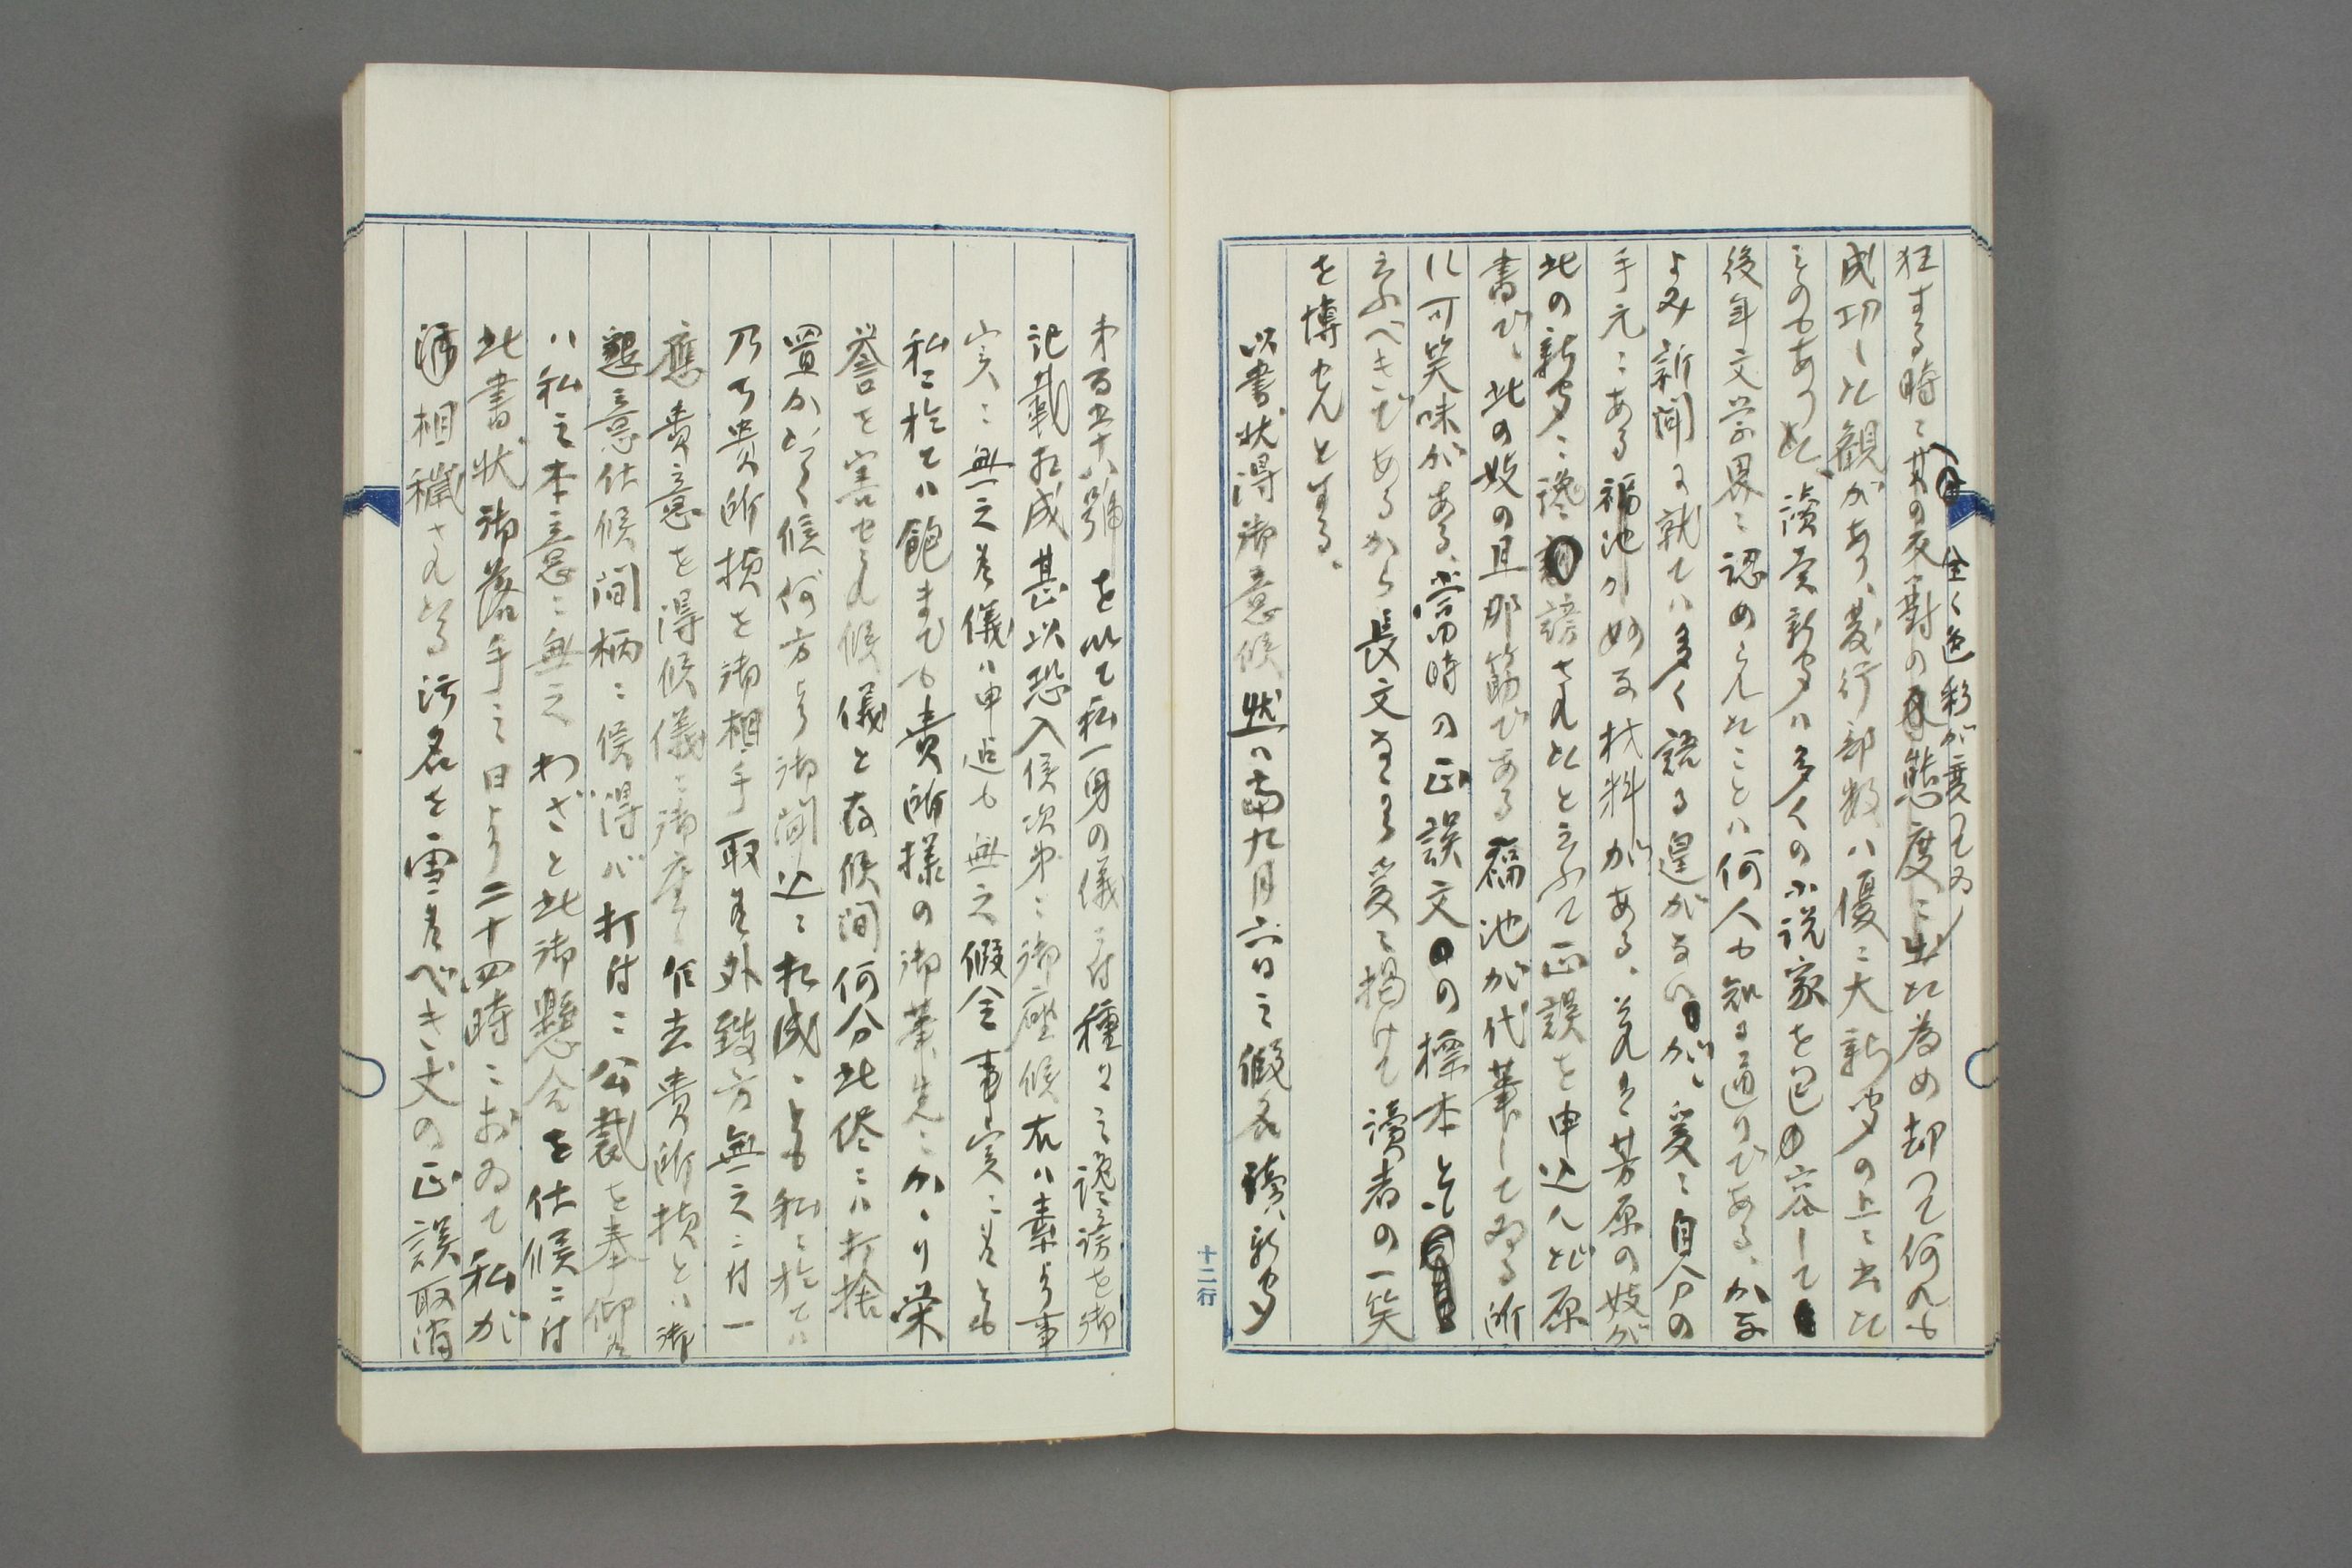 狂する時に其の反對の態度に出た為め却つて何れも
全く色彩が変つてゐ
成功した観があり、発行部数ハ優に大新聞の上に出た
ものもあつた、読売新聞ハ多くの小説家を包容して
後年文学界に認められたことハ何人も知る通りである、かな
よみ新聞に就てハ多く語る遑がないが、爰に自分の
手元にある福池の妙な材料がある、夫れは芳原の妓が
此の新聞に讒謗されたと云ふて正誤を申込んだ原
書で、此の妓の旦那筋である福池が代筆してゐる所
に可笑味がある、当時の正誤文の標本とも
云ふべきであるから長文なるも爰に掲げて読者の一笑
を博せんとする。
以書状得御意候然ハ当九月六日之假名讀新聞
十二行
第百五十八号を以て私一身の儀ニ付種々之讒謗を御
記載相成甚以恐入候次第ニ御座候右ハ素より事
実ニ無之者儀ハ申迄も無之假令事実ニ候とも
私ニ於てハ飽までも貴所様の御筆先ニかゝり栄
誉を害せられ候儀と存候間何分此侭ニハ打捨
置かたく候何方より御聞込ニ相成候とも私ニ於てハ
乃ち貴所様を御相手取候外致方無之ニ付一
應貴意を得候儀ニ御座候乍去貴所様とハ御
懇意仕候間柄ニ候得バ打付ニ公裁を奉仰候
ハ私之本意ニ無之わざと此御懸合を仕候ニ付
此書状御落手之日より二十四時ニおゐて私が
相穢されたる汚名を雪候べき丈の正誤取消